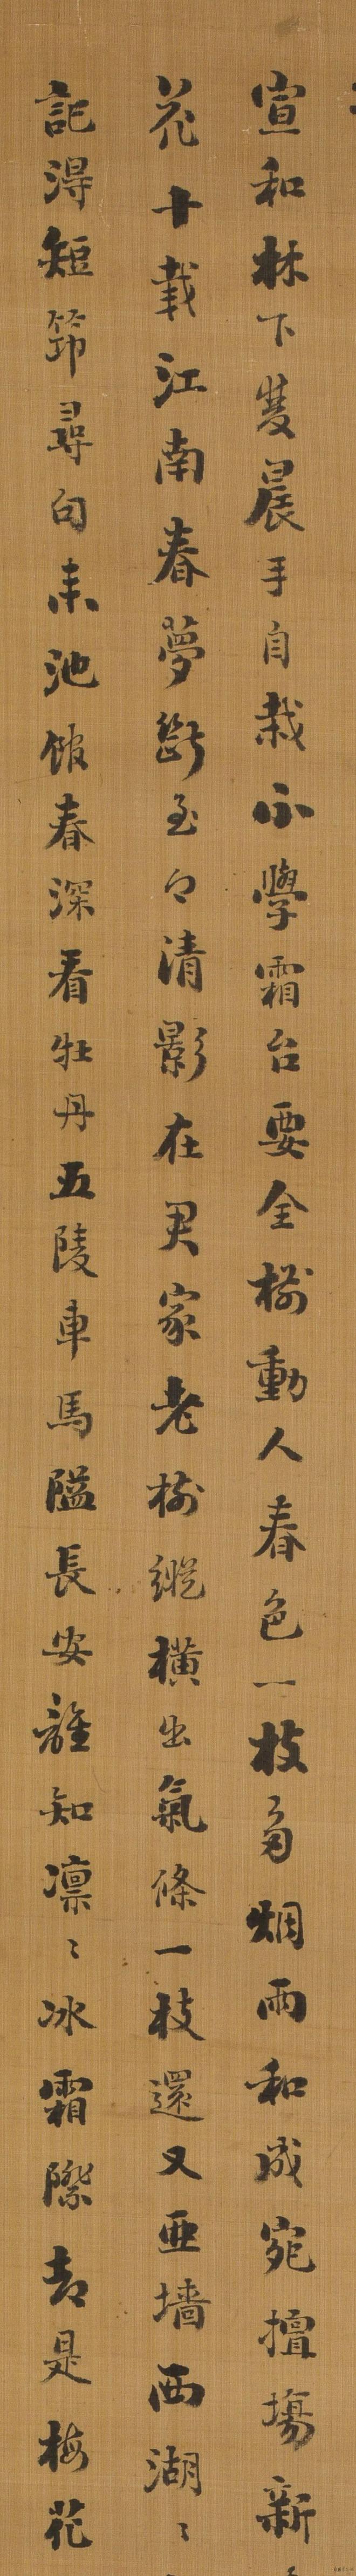 宣和林下晨手自栽不學霜台要全樹動人春色一枝多烟雨和成宛擅場新
花十載江南春夢斷至今清影在君家老樹縱橫出氣條一枝還又亞墻西湖〻
記得短筇尋句來池館春深看牡丹五陵車馬隘長安誰知凛〻冰霜際却是梅花